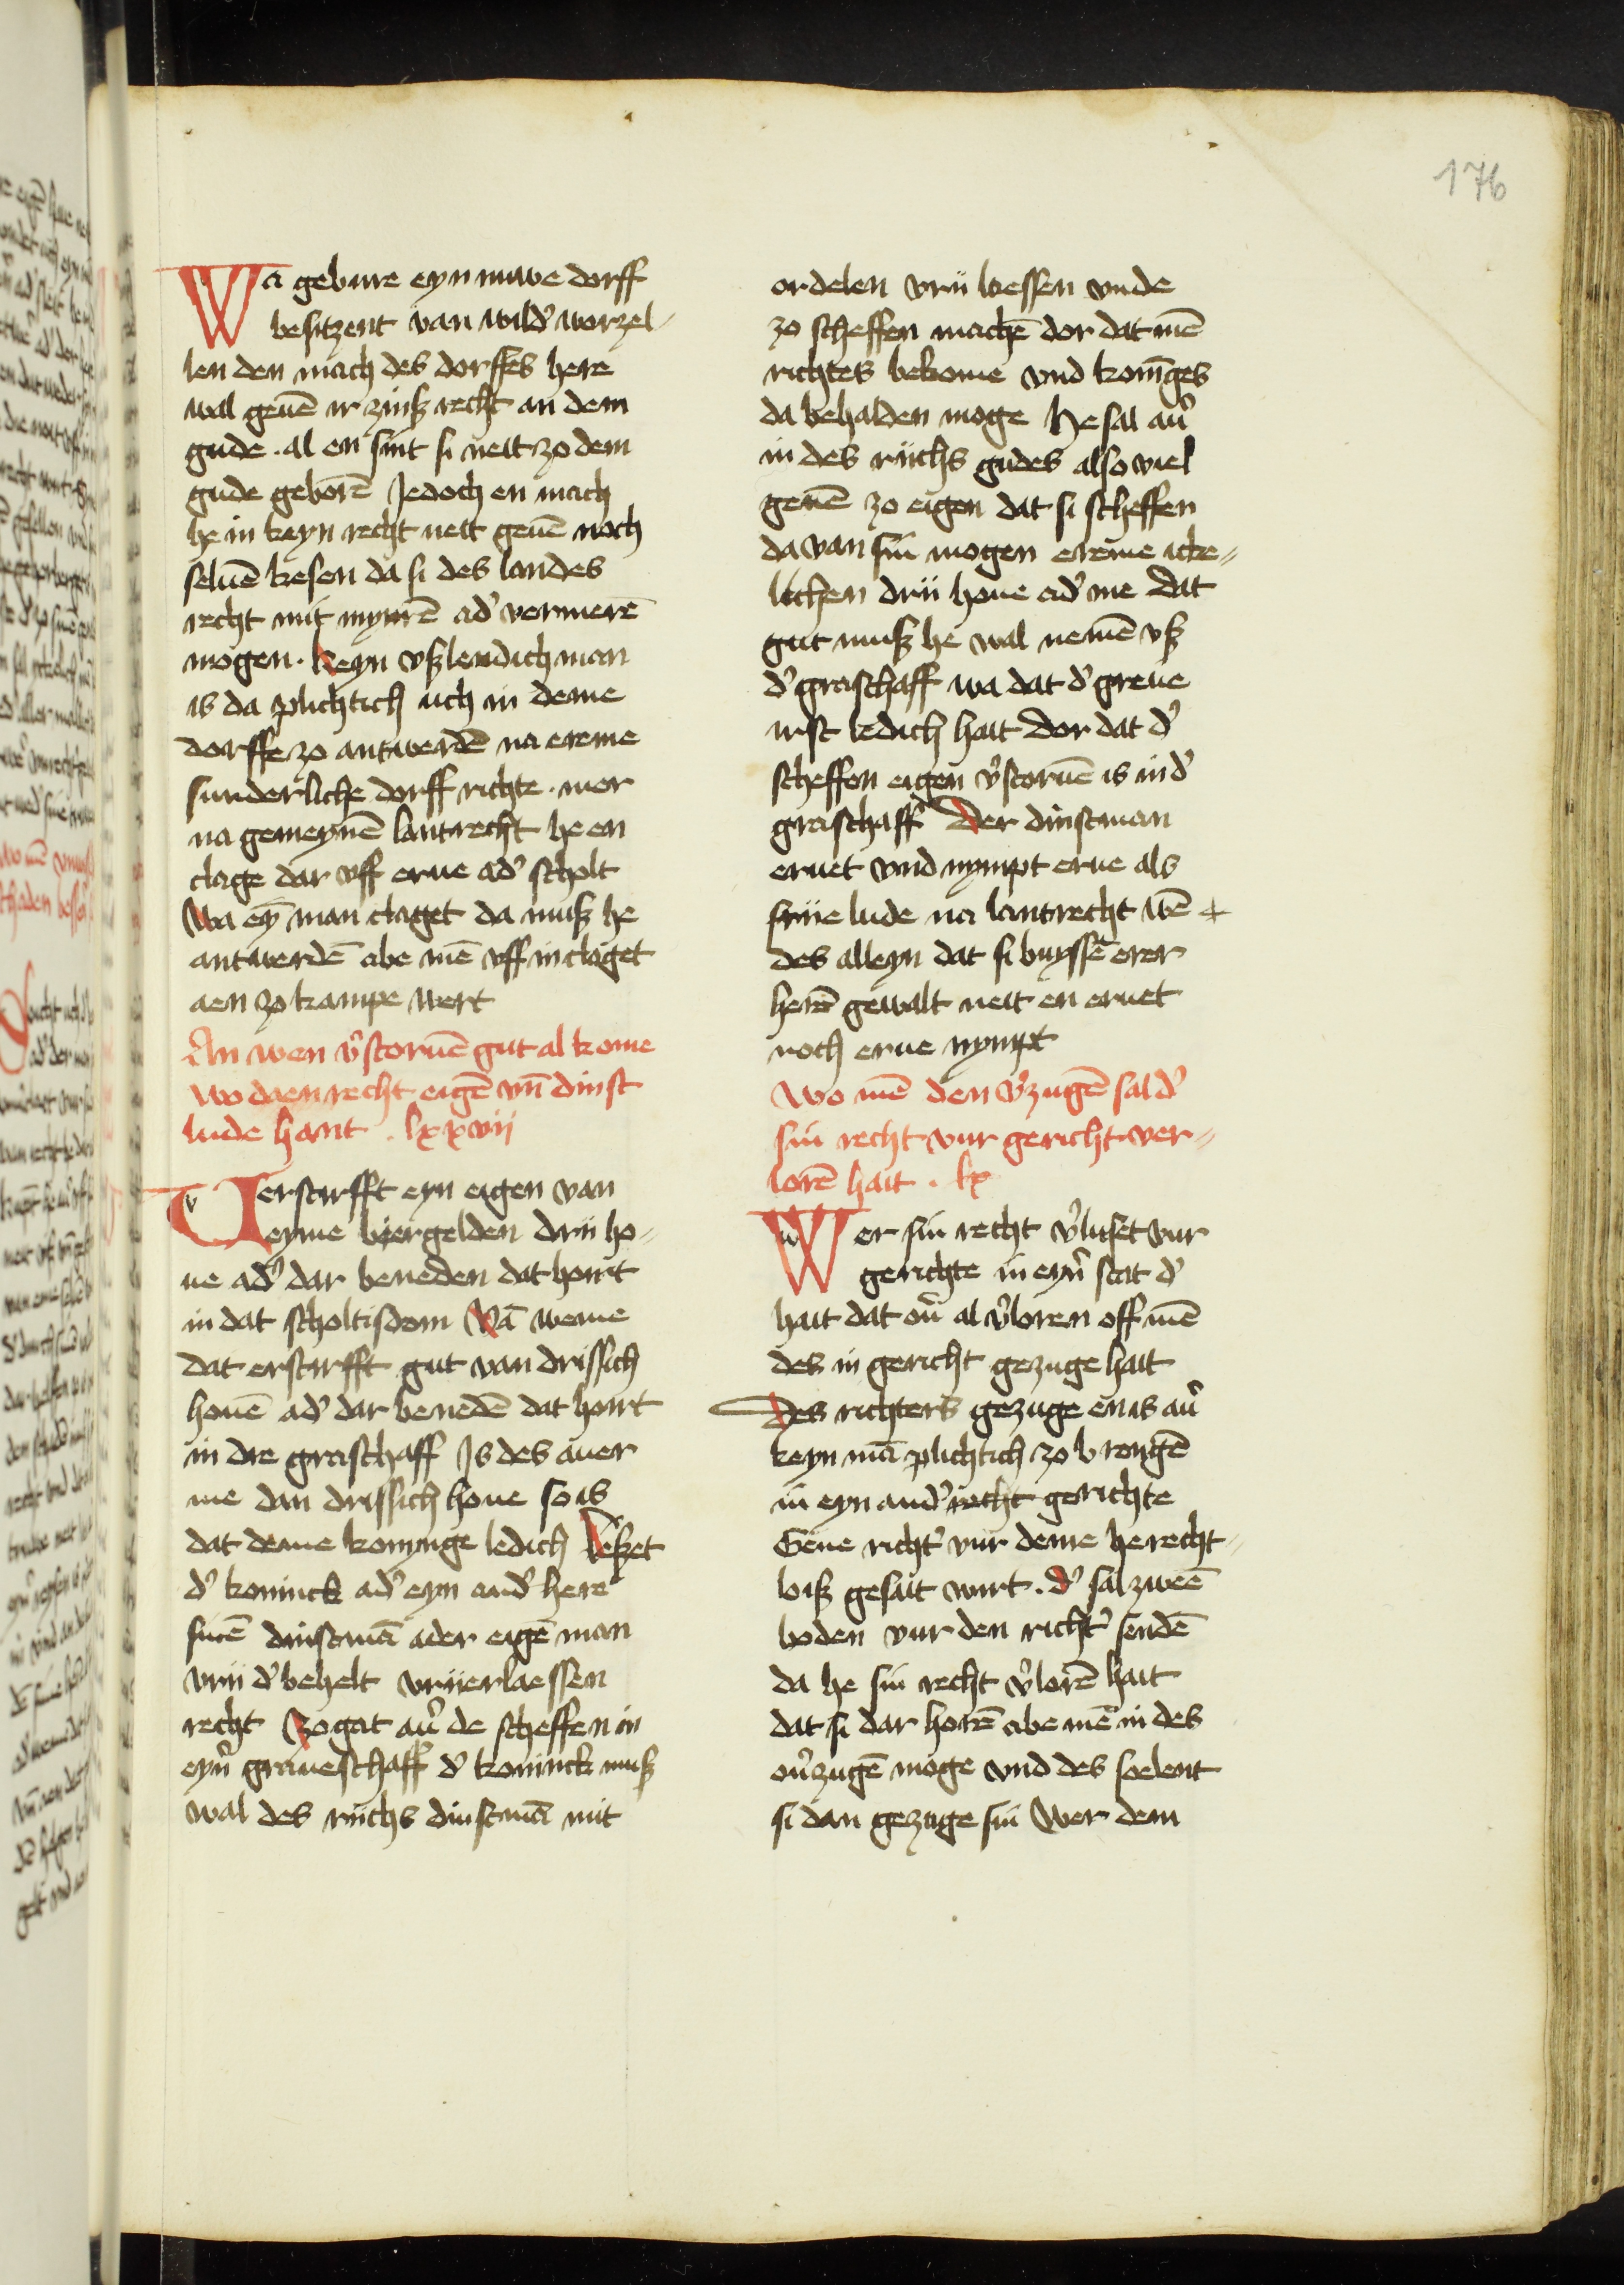 176
Wa gebure eyn nuwe dorff
besitzent van wild' worzel-
len den mach des dorffes here
wal geuē ir zinß recht an dem
gude . al en sint si neit zo dem
gude geborē Jedoch en mach
he in keyn recht neit geuē noch
seluē kesen da si des landes
recht mit mynrē ad' vermerē
mogen . keyn vßlendich man
is da plichtich uch in deme
dorffe zo antwerdē na ereme
sunderliche dorff richte . mer
na gemeynē lantrecht he en
clage dar vff erue ad' scholt
Wa eȳ man claget da muß he
antwerdē abe mē vff in claget
aen zo kampe wert
An wen v'storuē gut al kome
wo daen recht eigē vn̄ dinst
lude hant . lxxvii
Versterfft eyn eigen van
eyme biergelden drii ho-
ue ad' dar beneden dat horit
in dat scholtisdom Vā weme
dat ersterfft gut van drissich
houē ad' dar benedē dat horit
in die graschaff Is des auer
me dan drissich houe so is
dat deme konynge ledich Leßet
d' koninck ad' eyn and' here
sinē dinstmā ader eigē man
vrii d' behelt vriierlaessen
recht Zogat au' de scheffen in
eyn' graueschaff d' koninck muß
wal des riichs dinstmā mit
ordelen vrii laessen vnde
zo scheffen machē dor dat mē
richtes bekome vnd konīges
da behalden moge He sal au'
in des riichs gudes also viel
geuē zo eigen dat si scheffen
da van sin mogen ereme icke-
lichen drii houe ad' me Dat
gut muß he wal nemē vß
d' graschaff wa dat d' greue
irst ledich hait Dor dat d'
scheffen eigen v'storuē is in d'
graschaff Der dinstman
eruet vnd nympt erue als
friie lude na lantrecht wē +
des alleyn dat si buyssē erer
herē gewalt neit en eruet
noch erue nympt
Wo mē den v'zugē sal d'
sin recht vur gericht ver-
lorē hait . lx
Wer sin recht v'luset vur
gerichte in eyn' stat d'
hait dat ou' al v'loren off mē
des in gericht gezuge hait
Des richters gezuge en is au'
keyn mā plichtich zo brengē
in eyn and' recht gerichte
Gene richt' vur deme he recht-
loiß gesait wirt . d' sal zweē
boden vur den richt' sendē
da he sin recht v'lorē hait
dat si dar horē abe mē in des
ou'zugē moge vnd des soelent
si dan gezuge sin Wer dem